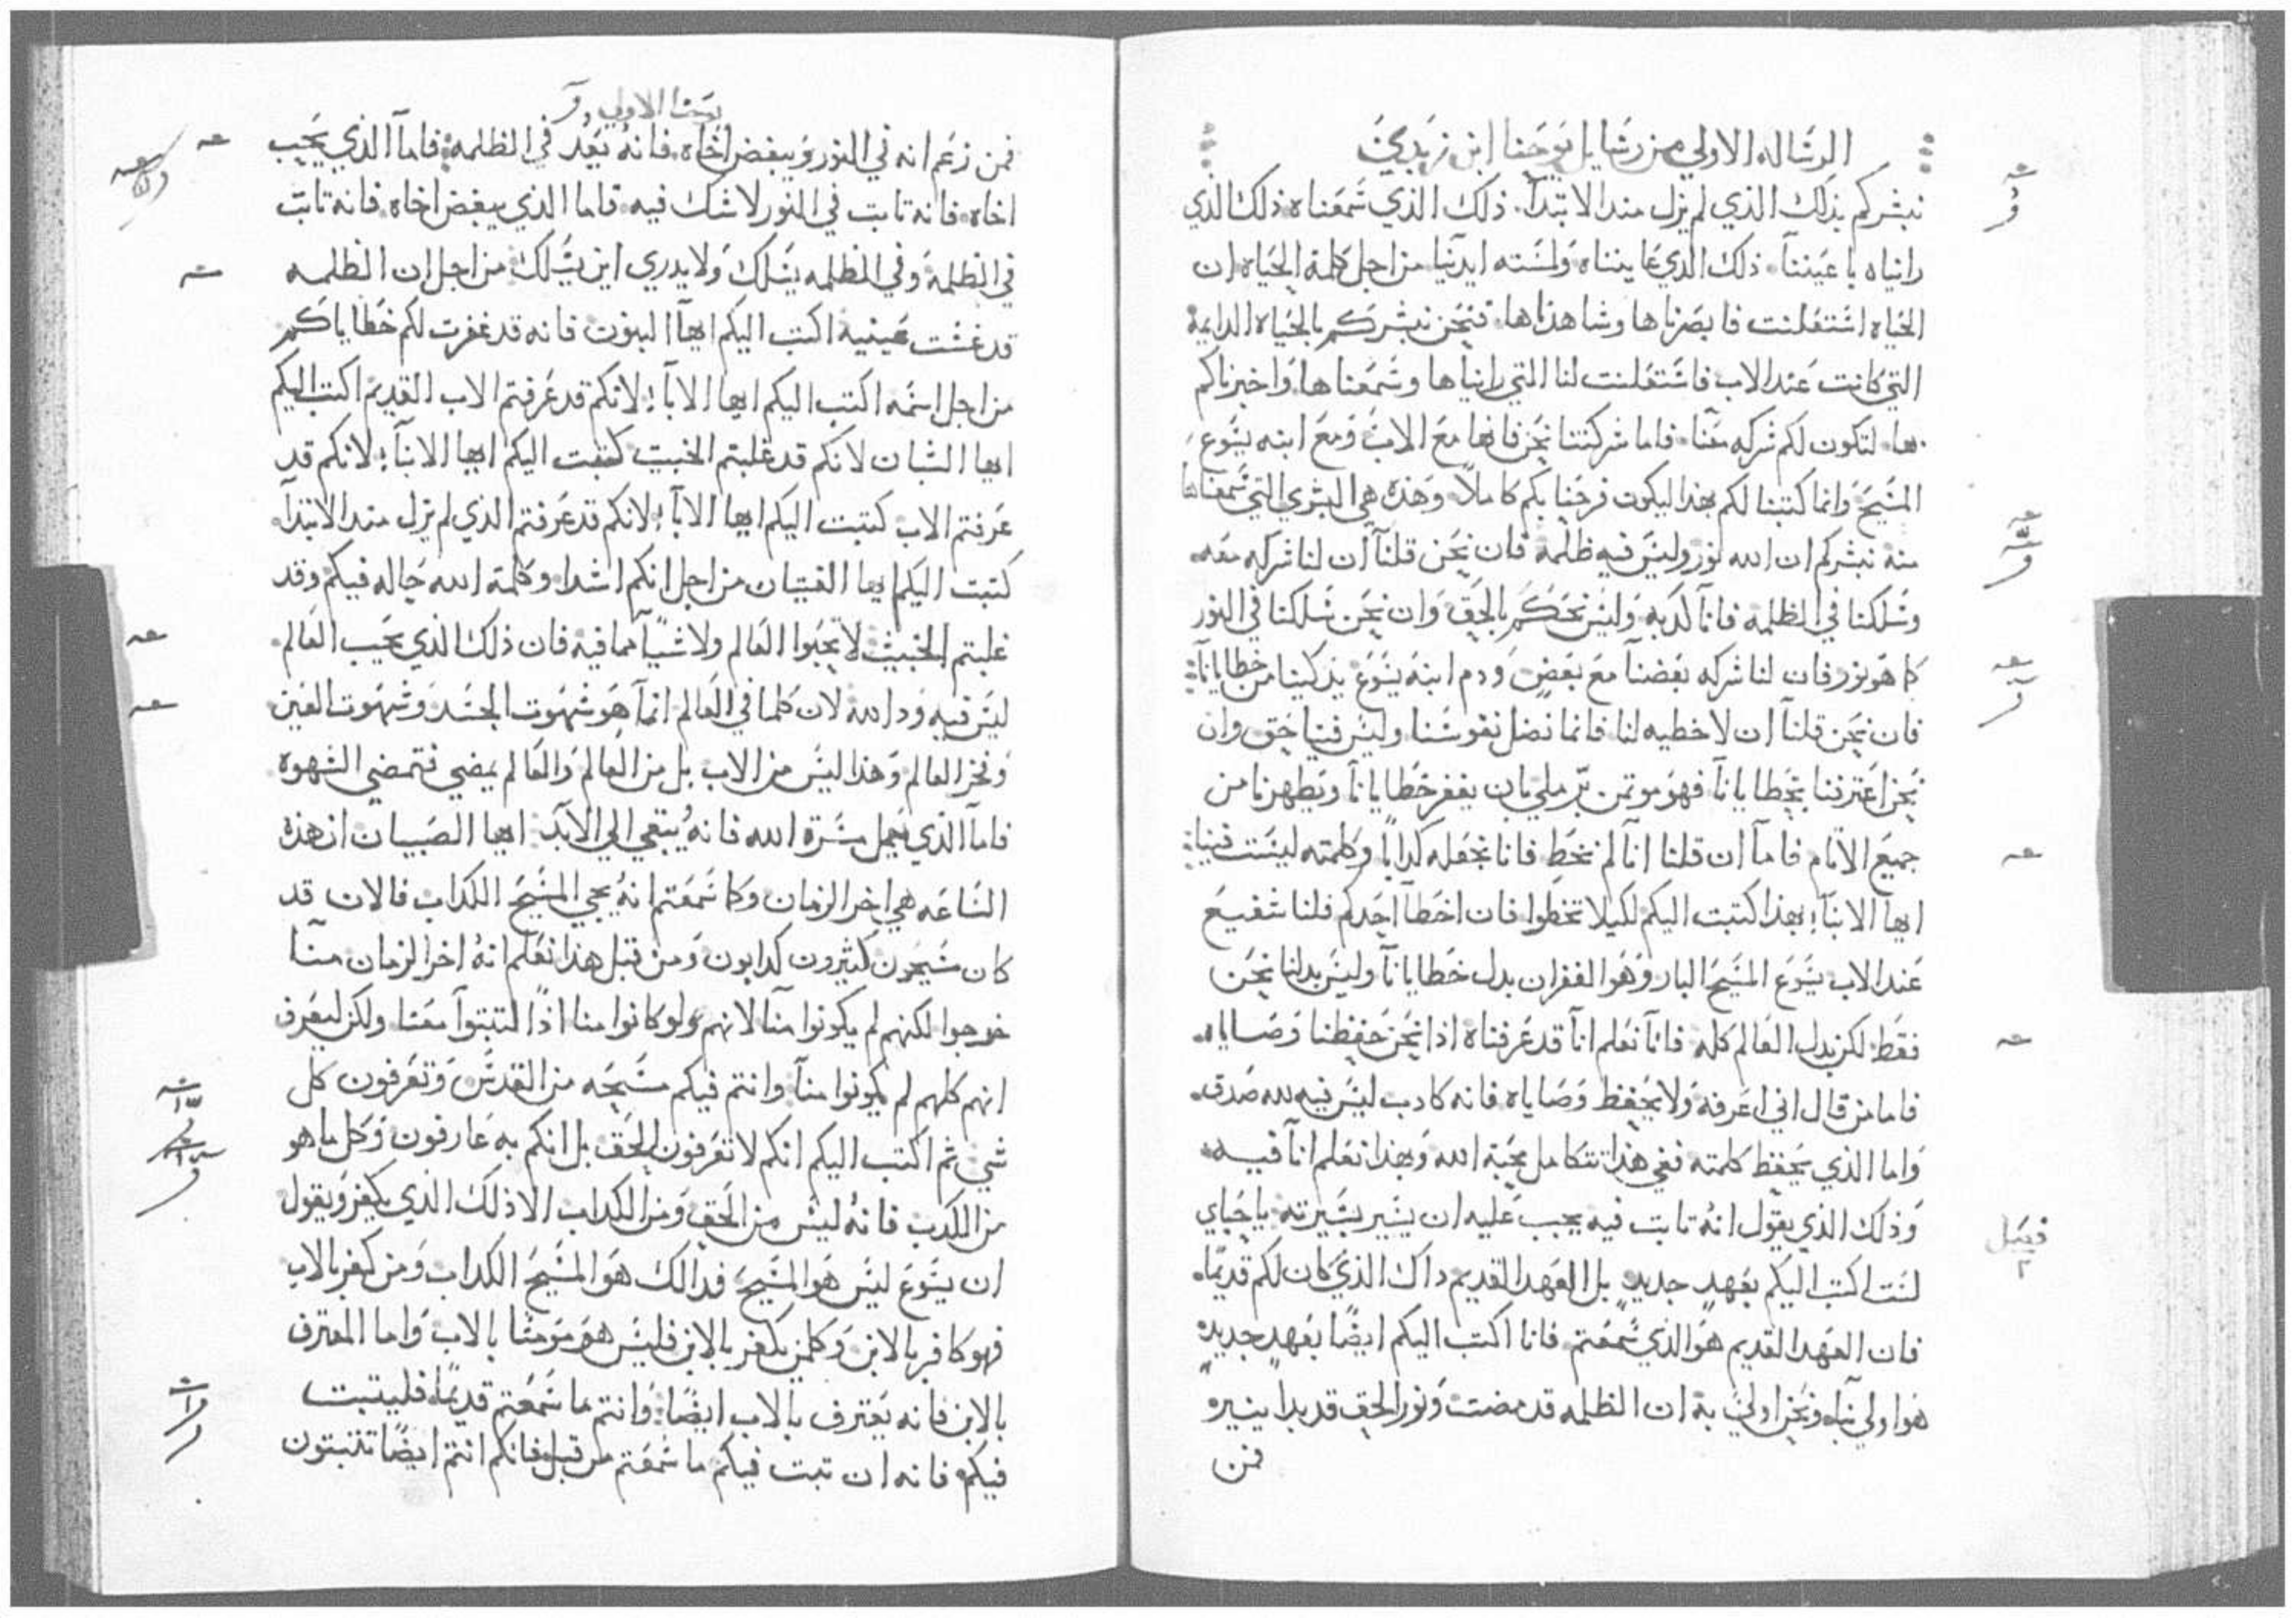 الرساله الاولي من رسايل يوحنا ابن زبدي
نبشركم بذلك الذي لم يزل مند الابتدآ. ذلك الذي سمعناه ذلك الذي
راناه باعيننآ. ذلك الذي عايناه ولمسته ايدينا من اجل كلمة الحياه ان
الحياه اشتعلنت فابصرناها وشاهدناها. فنحن نبشركم بالحياه الدايمة
التي كانت عند الاب فاشتعلنت لنا التي رايناها وسمعناها. واخبرناكم
بها. لتكون لكم شركه معنا. فاما شركتنا نحن فانها مع الاب ومع ابنه يسوع
المسيح وانما كتبنا لكم بهذا ليكون فرحنا بكم كاملاً وهذه هي البشري التي سمعناها
منه نبشركم ان الله نور وليس فيه ظلمة فان نحن قلنآ ان لنا شركه معه.
وسلكنا في الظلمه فانآ كدبه وليس نحكم بالحق وان نحن سلكنا في النور
كما هو نور فان لنا شركه بعضنآ مع بعض ودم ابنه يسوع يدكينا من خطايانآ:
فان نحن قلنآ ان لا خطيه لنا فانما نضل نفوسنا وليس فينا حق وان
نحن اعترفنا بخطايانآ فهو موتمن بر ملي بان يغفر خطايانآ ويطهرنا من
جميع الآتام فامآ ان قلنا انآ لم نخط فانا نجعله كدابًا وكلمته ليست فينا:
ايها الابنآ؛ بهذا كتبت اليكم لكيلا تخطوا فان اخطآ احدكم فلنا شفيع
عند الاب يسوع المسيح البار وهو الغفران بدل خطايانآ وليس بدلنا نحن
فقط لكن بدل العالم كله فانآ نعلم انآ قد عرفناه اذا نحن حفظنا وصاياه.
فاما من قال اني اعرفه ولا يحفظ وصاياه فانه كادب ليس فيه لله صدق.
واما الذي يحفظ كلمته ففي هذا تتكامل محبة الله وبهذا نعلم انآ فيه
وذلك الذي يقول انهُ تابت فيه يجب عليه ان يسير بسيرته يا حباي
لست اكتب اليكم بعهدٍ جديدٍ بل العهد القديم داك الذي كان لكم قديمًا.
فان العهد القديم هو الذي سمعتم فانا اكتب اليكم ايضًا بعهدٍ جديد
هو اولي بنا ونحن اولي به ان الظلمه قد مضت ونور الحق قد بدا ينير
فمن
فصل
٢
يوحنا الاولي
فمن زعم انه في النور ويبغض اخاه. فانهُ بعد في الظلمة: فامآ الذي يحب
اخاه. فانه تابت في النور لا شك فيه. فاما الذي يبغض اخاه. فانه تابت
في الظلمة وفي الظلمه يسلك ولا يدري اين يسلك من اجل ان الظلمه
قد غشت عينيه اكتب اليكم ايهآ البنون فانه قد غفرت لكم خطاياكم
من اجل اسمه اكتب اليكم ايها الابآ؛ لانكم قد عرفتم الاب القديم اكتب اليكم
ايها الشبان لانكم قد غلبتم الخبيت كتبت اليكم ايها الابنآ؛ لانكم قد
عرفتم الاب كتبت اليكم ايها الابآ؛ لانكم قد عرفتم الذي لم يزل مند الابتدآ.
كتبت اليكم ايها الفتيان من اجل انكم اشدا. وكلمة الله حاله فيكم وقد
غلبتم الخبيث لا تحبوا العالم ولا شيًا مما فيه فان ذلك الذي يحب العالم.
ليس فيه ود الله لان كلما في العالم انمآ هو شهوت الجسد وشهوت العين
وفخر العالم وهذا ليس من الاب بل من العالم والعالم يمضي فتمضي الشهوه
فامآ الذي يعمل مسرة الله فانهُ يبقي الي الابد: ايها الصبيان ان هذه
الساعه هي اخر الزمان وكما سمعتم انهُ يجي المسيح الكداب فالان قد
كان مسيحون كثيرون كدابون ومن قبل هذا نعلم انهُ اخر الزمان منآ
خرجوا لكنهم لم يكونوا منآ لانهم ولو كانوا منا اذًا لتبتوآ معنا ولكن ليعرف
انهم كلهم لم يكونوا منآ وانتم فيكم مسحه من القدس وتعرفون كل
شي ثم اكتب اليكم انكم لا تعرفون الحق بل انكم به عارفون وكل ما هو
من الكدب فانهُ ليس من الحق ومن الكداب الا ذلك الذي يكفر ويقول
ان يسوع ليس هو المسيح فدالك هو المسيح الكداب ومن كفر بالاب
فهو كافر بالابن وكلمن يكفر بالابن فليس هو مومنًا بالاب واما المعترف
بالابن فانه يعترف بالاب ايضًا: وانتم ما سمعتم قديمًا. فليتبت
فيكم فانه ان تبت فيكم ما سمعتم من قبل فانكم انتم ايضًا تتبتون